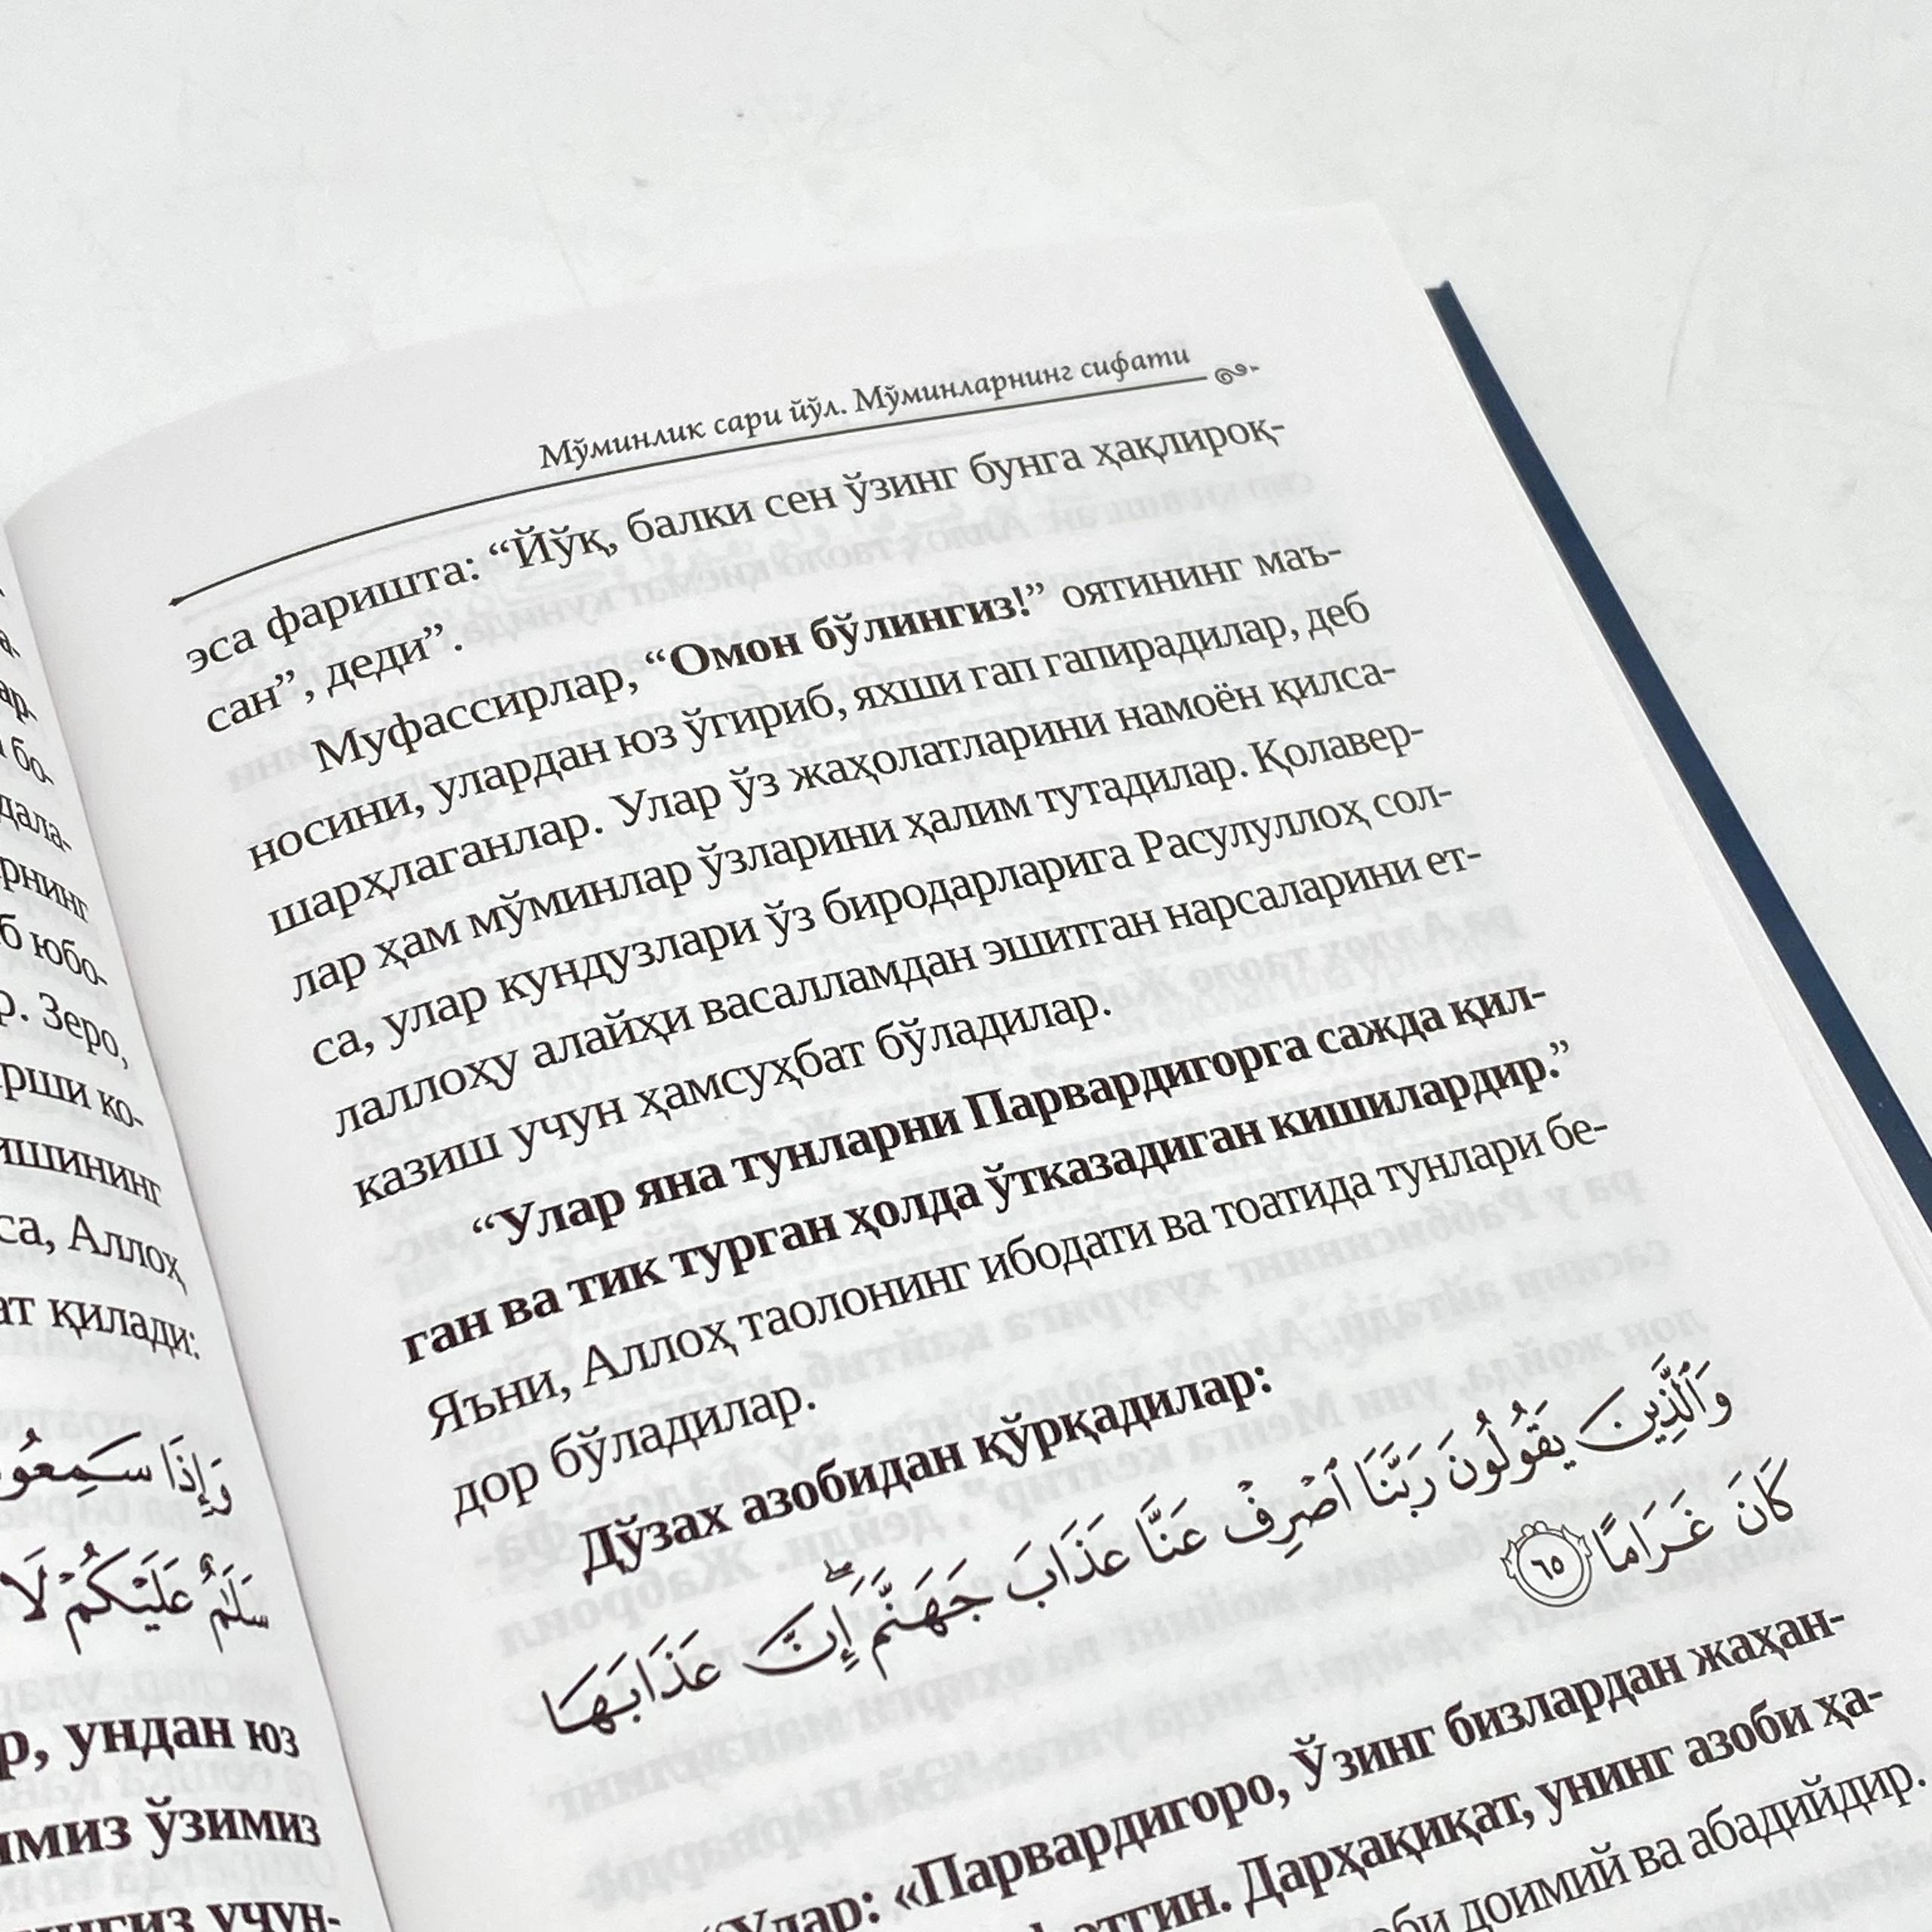 бо-
дала-
рнинг
б юбо-
р. Зеро,
рши ко-
ишининг
са, Аллоҳ
ат қилади:
وَإِذَا سَمِعُو
سَلَٰمٌ عَلَيْكُمْ لَا
р, ундан юз
имиз ўзимиз
нгиз учун-
Мўминлик сари йўл. Мўминларнинг сифати
эса фаришта: “Йўқ, балки сен ўзинг бунга ҳақлироқ-
сан”, деди”.
Муфассирлар, “Омон бўлингиз!” оятининг маъ-
носини, улардан юз ўгириб, яхши гап гапирадилар, деб
шарҳлаганлар. Улар ўз жаҳолатларини намоён қилса-
лар ҳам мўминлар ўзларини ҳалим тутадилар. Қолавер-
са, улар кундузлари ўз биродарларига Расулуллоҳ сол-
лаллоҳу алайҳи васалламдан эшитган нарсаларини ет-
казиш учун ҳамсуҳбат бўладилар.
“Улар яна тунларни Парвардигорга сажда қил-
ган ва тик турган ҳолда ўтказадиган кишилардир.”
Яъни, Аллоҳ таолонинг ибодати ва тоатида тунлари бе-
дор бўладилар.
Дўзах азобидан қўрқадилар:
وَٱلَّذِينَ يَقُولُونَ رَبَّنَا ٱصْرِفْ عَنَّا عَذَابَ جَهَنَّمَ ۖ إِنَّ عَذَابَهَا
كَانَ غَرَامًا ٦٥
“Улар: «Парвардигоро, Ўзинг бизлардан жаҳан-
этгин. Дарҳақиқат, унинг азоби ҳа-
оби доимий ва абадийдир.